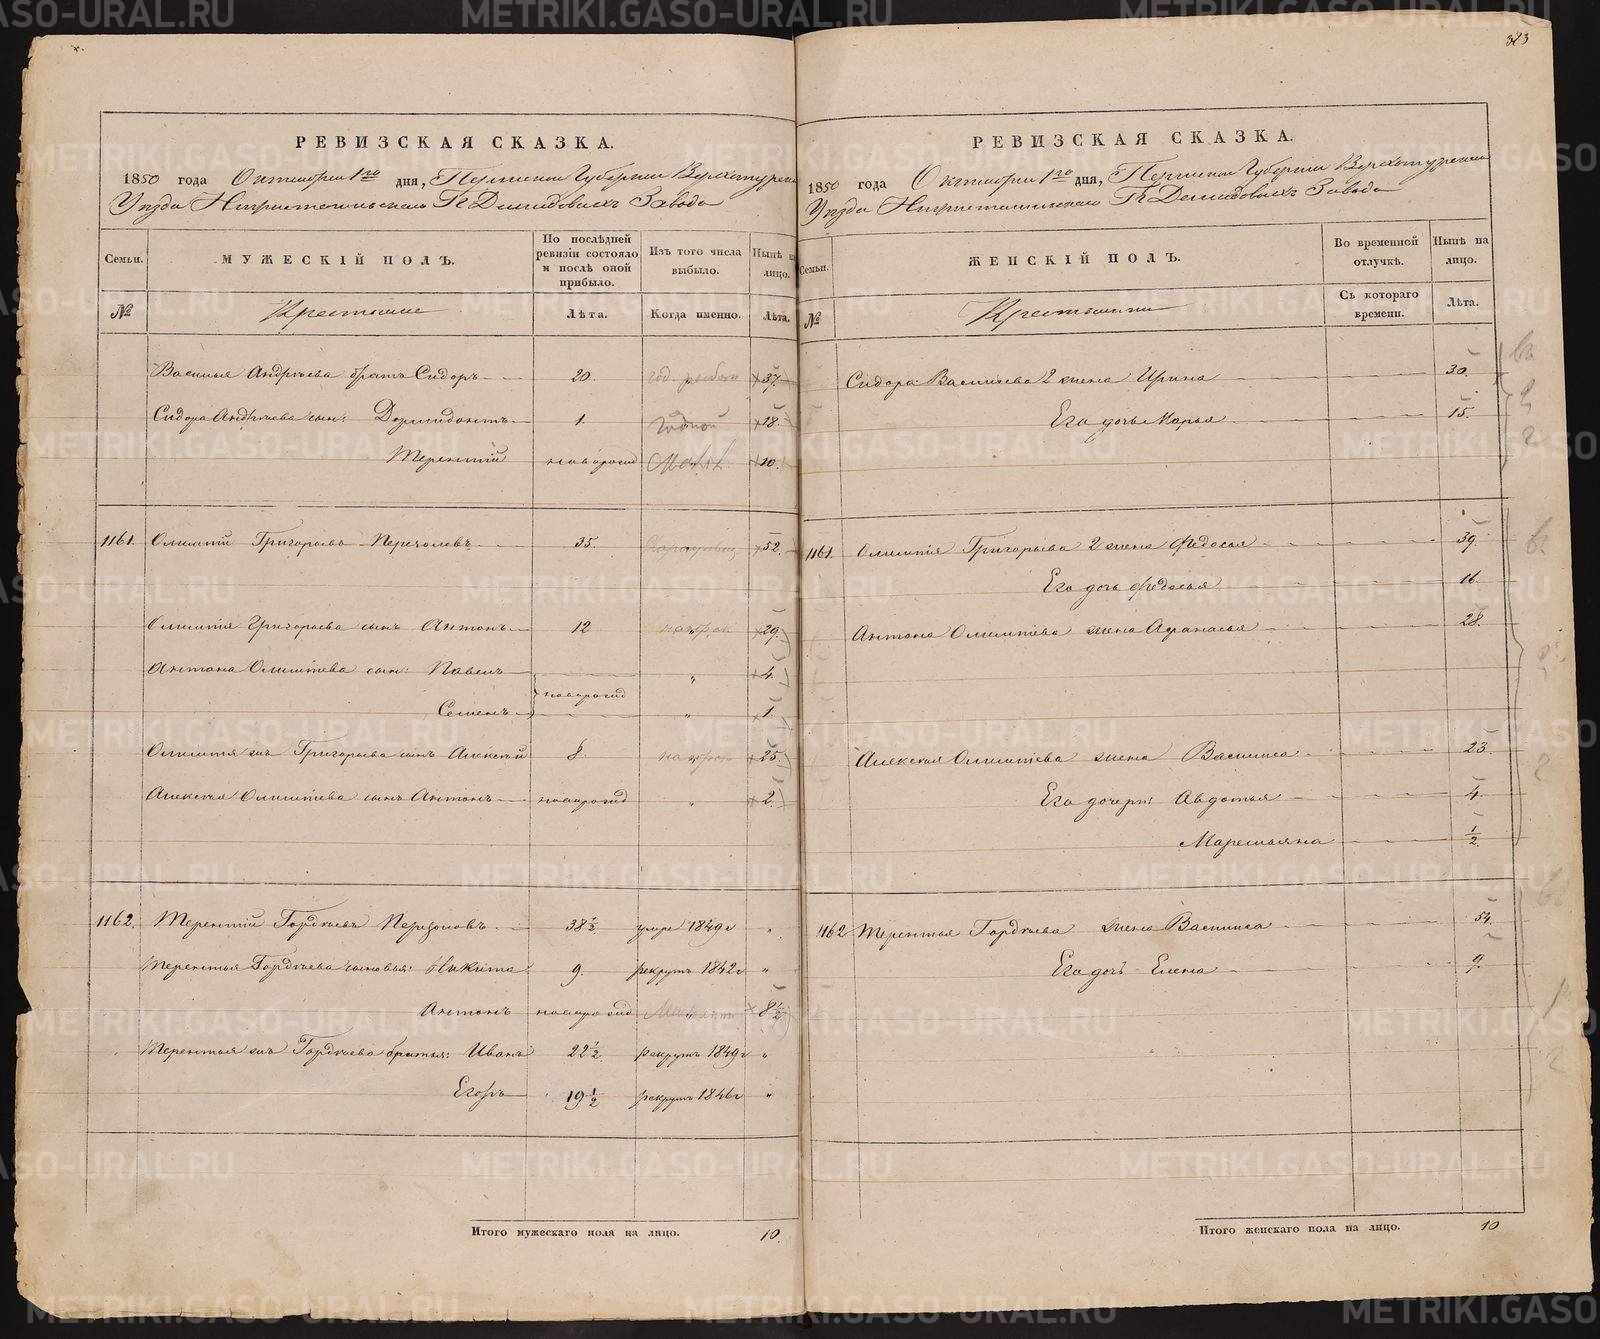 РЕВИЗСКАЯ СКАЗКА.
1850 года Октября 1го дня, Пермской Губернии Верхотурска
Уезда Нижнетагильскаго Гг Демидовыхъ Завода
Семьи.
МУЖЕСКІЙ ПОЛЪ.
По послѣдней ревизіи состояло и послѣ оной прибыло.
Изъ того числа выбыло.
Нынѣ на лицо.
№
Крестьяне
Лѣта.
Когда именно.
Лѣта.
Василья Андреева братъ Сидоръ 20. 37
Сидора Андреева сын: Дормидонтъ 1. 18.
Терентій новорожд 10.
1161. Олимпій Григорьевъ 35. 52.
Олимпія Григорьева сынъ Антонъ 12 29
Антона Олимпіева сын: Павелъ „ 4.
новорожд
Семенъ „ 1.
Олимпія же Григорьева сынъ Алексѣй 8. 25
Алексѣя Олимпіева сынъ Антонъ новорожд „ 2.
1162. Терентій Гордѣевъ 38½ умре 1849 г „
Терентья Гордѣева сыновья: Никита 9. рекрутъ 1842 г „
Антонъ новорожд 8½
Терентья же Гордѣева братья: Иванъ 22½ рекрутъ 1849 г „
Егоръ 19½ рекрутъ 1846 г „
Итого мужескаго пола на лицо. 10.
323
РЕВИЗСКАЯ СКАЗКА.
1850 года Октября 1го дня, Пермской Губернии Верхотурска
Уезда Нижнетагильскаго Гг Демидовыхъ Завода
Семьи.
ЖЕНСКІЙ ПОЛЪ.
Во временной отлучкѣ.
Нынѣ на лицо.
№
Крестьянки
Съ котораго времени.
Лѣта.
Сидора Васильева 2 жена Ирина 30.
Его дочь Марья 15.
1161. Олимпія Григорьева 2 жена Федосья 39.
Его дочь Федосья 16.
Антона Олимпіева жена Афанасья 28.
Алексѣя Олимпіева жена Василиса 23
Его дочери: Авдотья 4.
Маремьяна ½.
1162 Терентья Гордѣева жена Василиса 54.
Его дочь Елена 9.
Итого женскаго пола на лицо. 10
METRIKI.GASO-URAL.RU